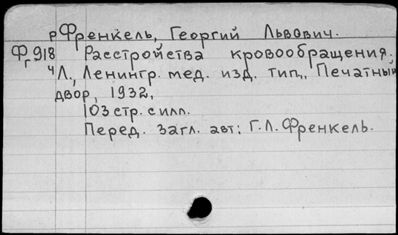 р Френкель, Георгий Львович.
Фг918 Расстройства кровообращения.
ч Л., Ленингр. мед. изд. тип. "Печатный
двор", 1932,
103 стр. с илл.
Перед. загл. авт: Г.Л. Френкель.